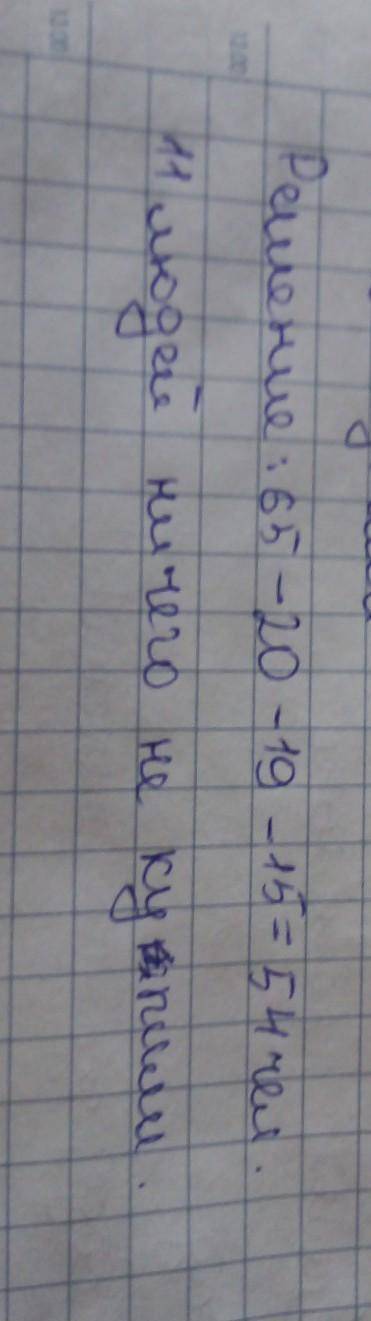 Решение: 65 - 20 - 19 - 15 = 54 чел.
11 людей ничего не купили.